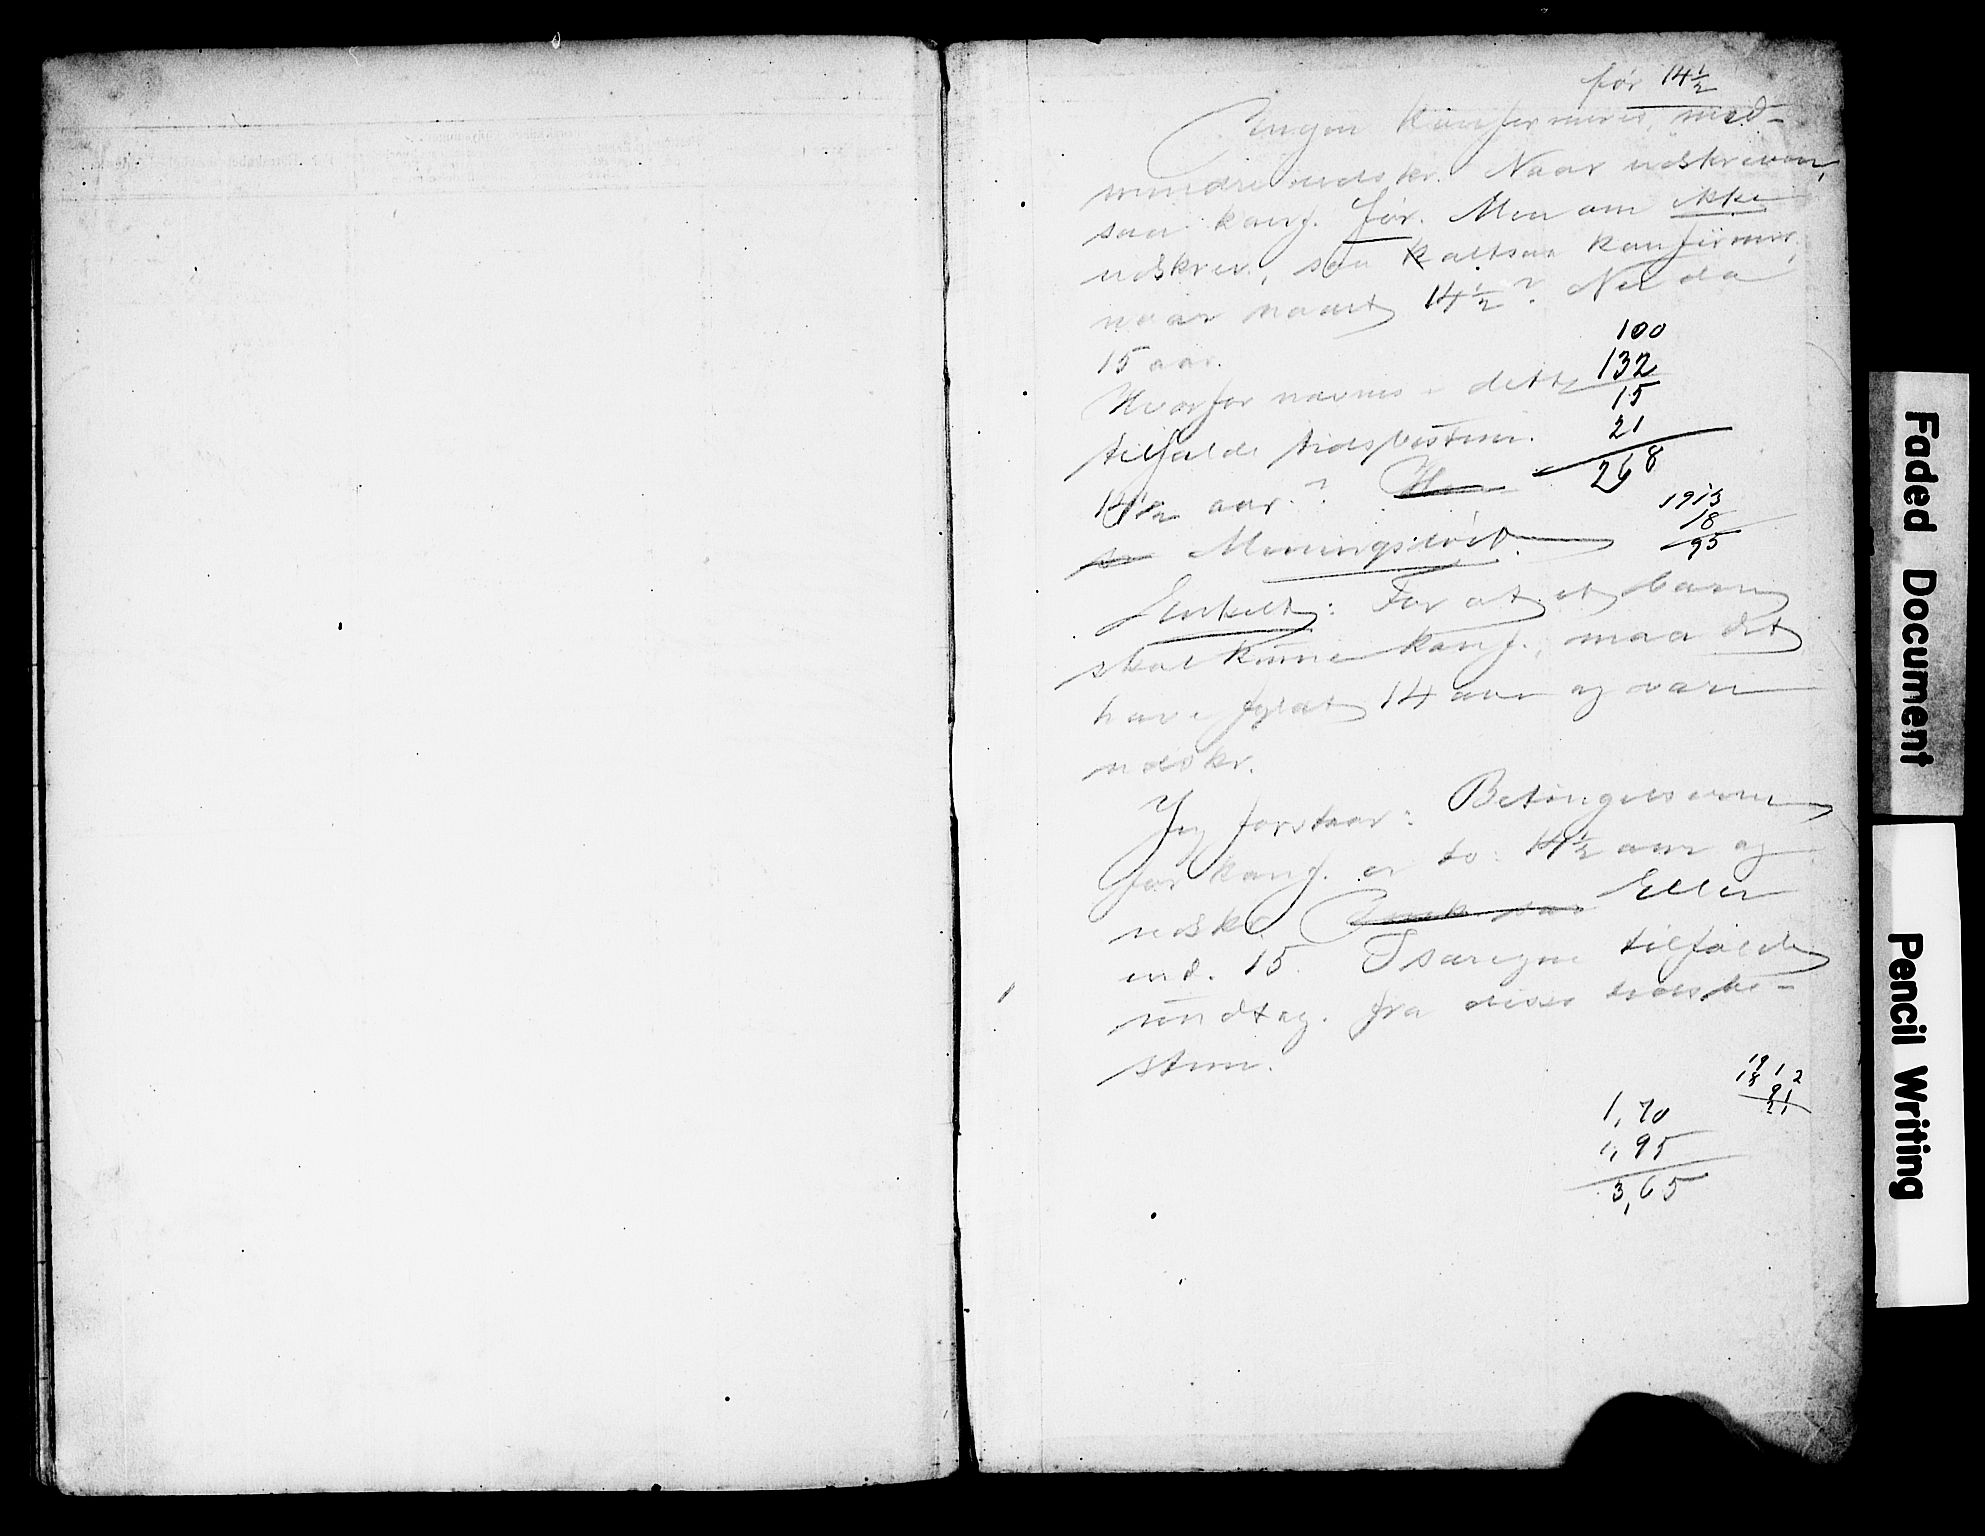 før 14½
Ingen konfirmeres, med-
mindre udskr. Naar udskreven,
saa konf. før. Men om ikke
udskrev., saa altsaa konfirmr.
naar naaet 14½? Nei da
15 aar.
Hvorfor nævnes i dette
tilfælde tidsbestem.
14½ aar.?
Meningsløst.
100
132
15
21
268
1913
18
95
Enkelt: For at et barn
skal kunne konf., maa det
have fyldt 14 aar og være
udskr.
Jeg forstaar: Betingelserne
for konf. er to: 14½ aar og
udskr. Eller
und. 15. I særegne tilfælde
undtag. fra disse tidsbe-
stem.
1912
1891
21
1,70
1,95
3,65
Faded Document
Pencil Writing